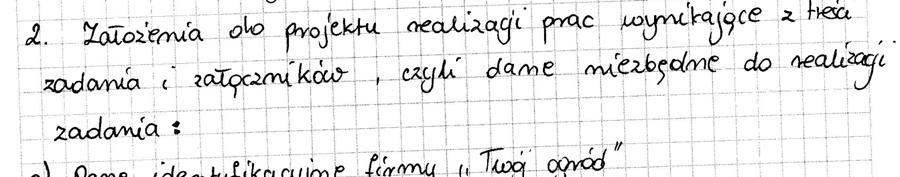 2. Założenia do projektu realizacji prac wynikające z treści
zadania i załączników, czyli dane niezbędne do realizacji
zadania:
a) Dane identyfikacyjne firmy „Twój ogród”